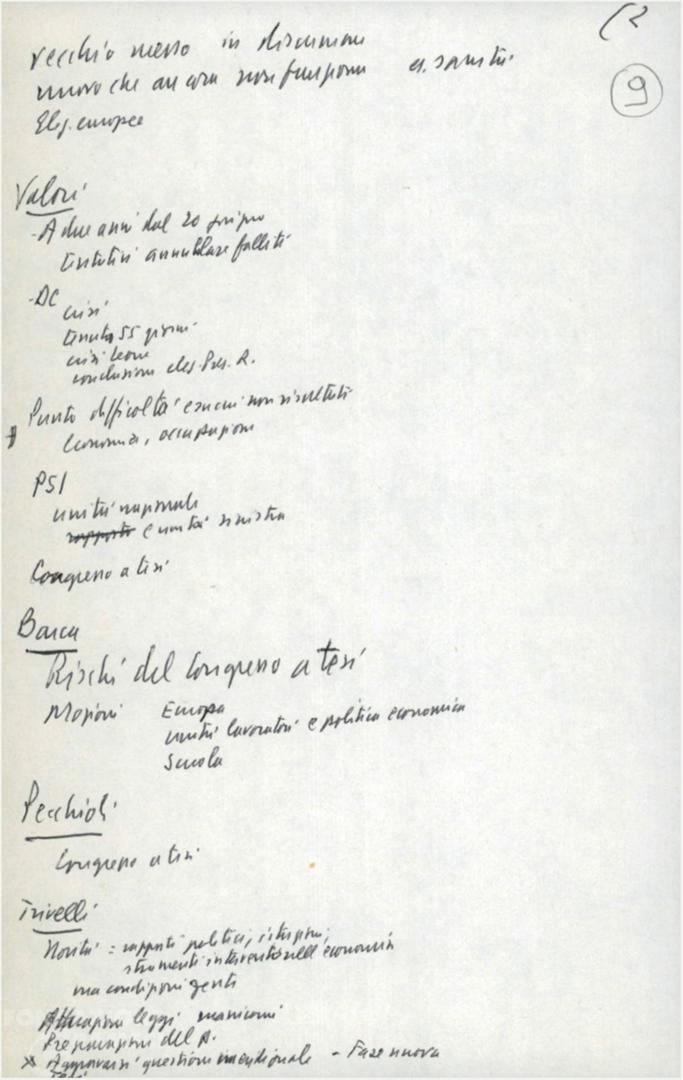 (2
9
vecchio messo in discussione
nuovo che ancora non funziona es. sanità
Elez. europee
Valori
- A due anni dal 20 giugno
tentativi annullare falliti
- DC
crisi
tenuta 55 giorni
crisi Leone
conclusione elez. Pres. R.
Punto difficoltà esami non risultati
economia, occupazione
PSI
unità nazionale
rapporto e unità sinistra
Congresso a tesi
Barca
Rischi del Congresso a tesi
Mozioni Europa
unità lavoratori e politica economica
Scuola
Pecchioli
Congresso a tesi
Trivelli
Novità = rapporti politici, istituzioni,
strumenti intervento nell'economia
ma condizioni gente
Attuazione leggi manicomi
Preparazione del P.
x Aggravarsi questione meridionale - Fase nuova